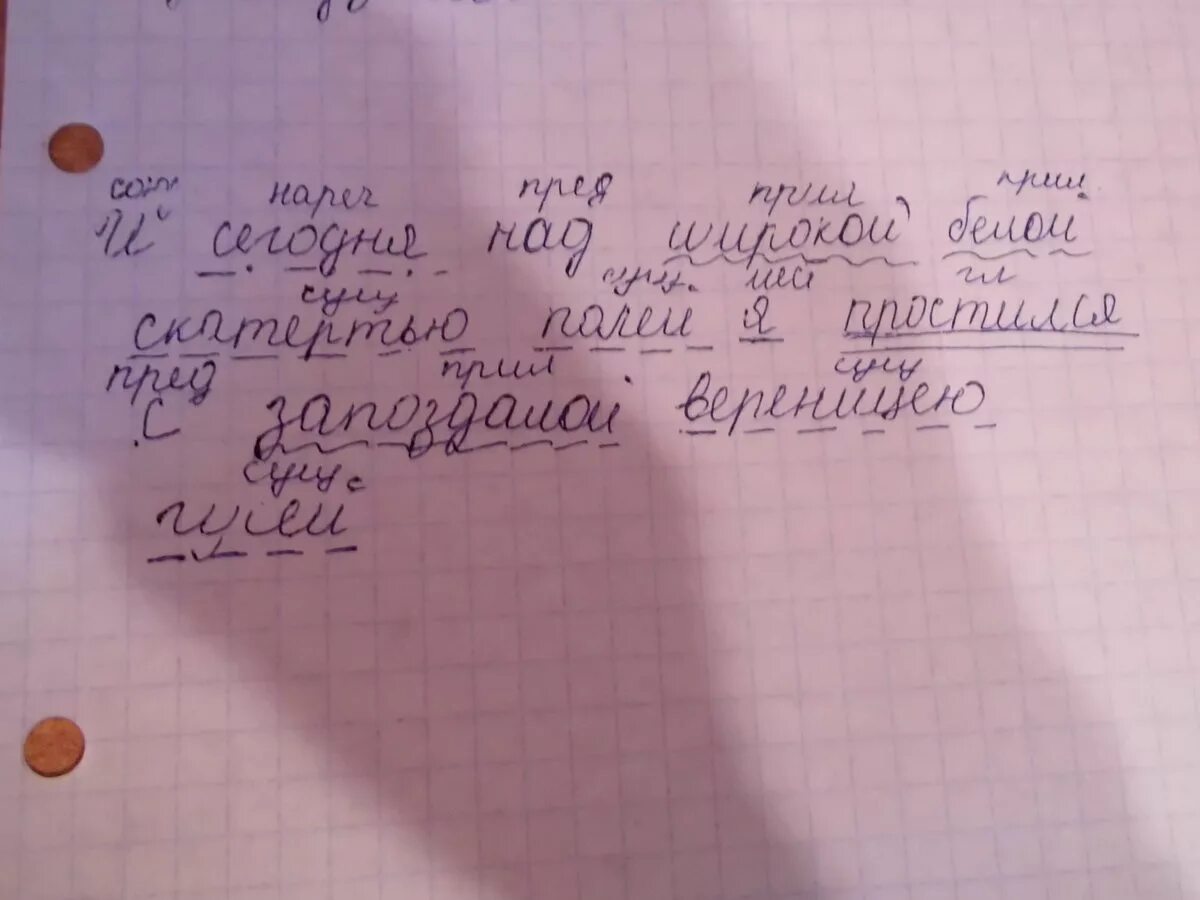 союз нареч пред прил прил
И сегодня над широкой белой
сущ сущ. мест гл
скатертью полей я простился
пред прил сущ
с запоздалой вереницею
сущ.
гусей